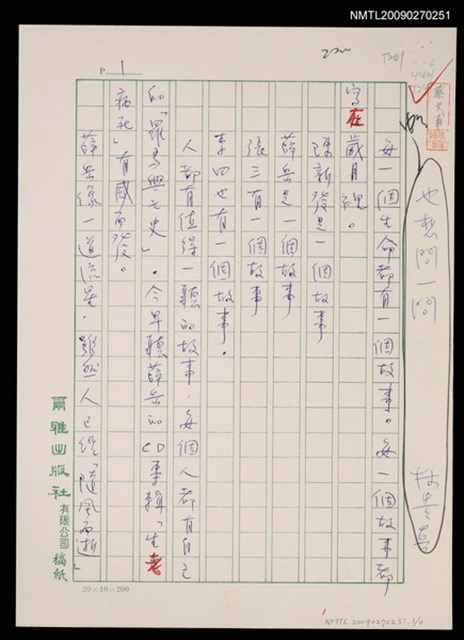 NMTL20090270251
P 1
也想問一問
林貴真
每一個生命都有一個故事。每一個故事都
寫在歲月裡。
陳新發是一個故事
薛岳是一個故事
張三有一個故事
李四也有一個故事。
人都有值得一聽的故事,每個人都有自己
的「羅馬興亡史」。今早聽薛岳的CD專輯「生老
病死」有感而發。
薛岳像一道流星,雖然人已經「隨風而逝」
爾雅出版社有限公司稿紙
20×10=200
NMTL20090270251, 1/11